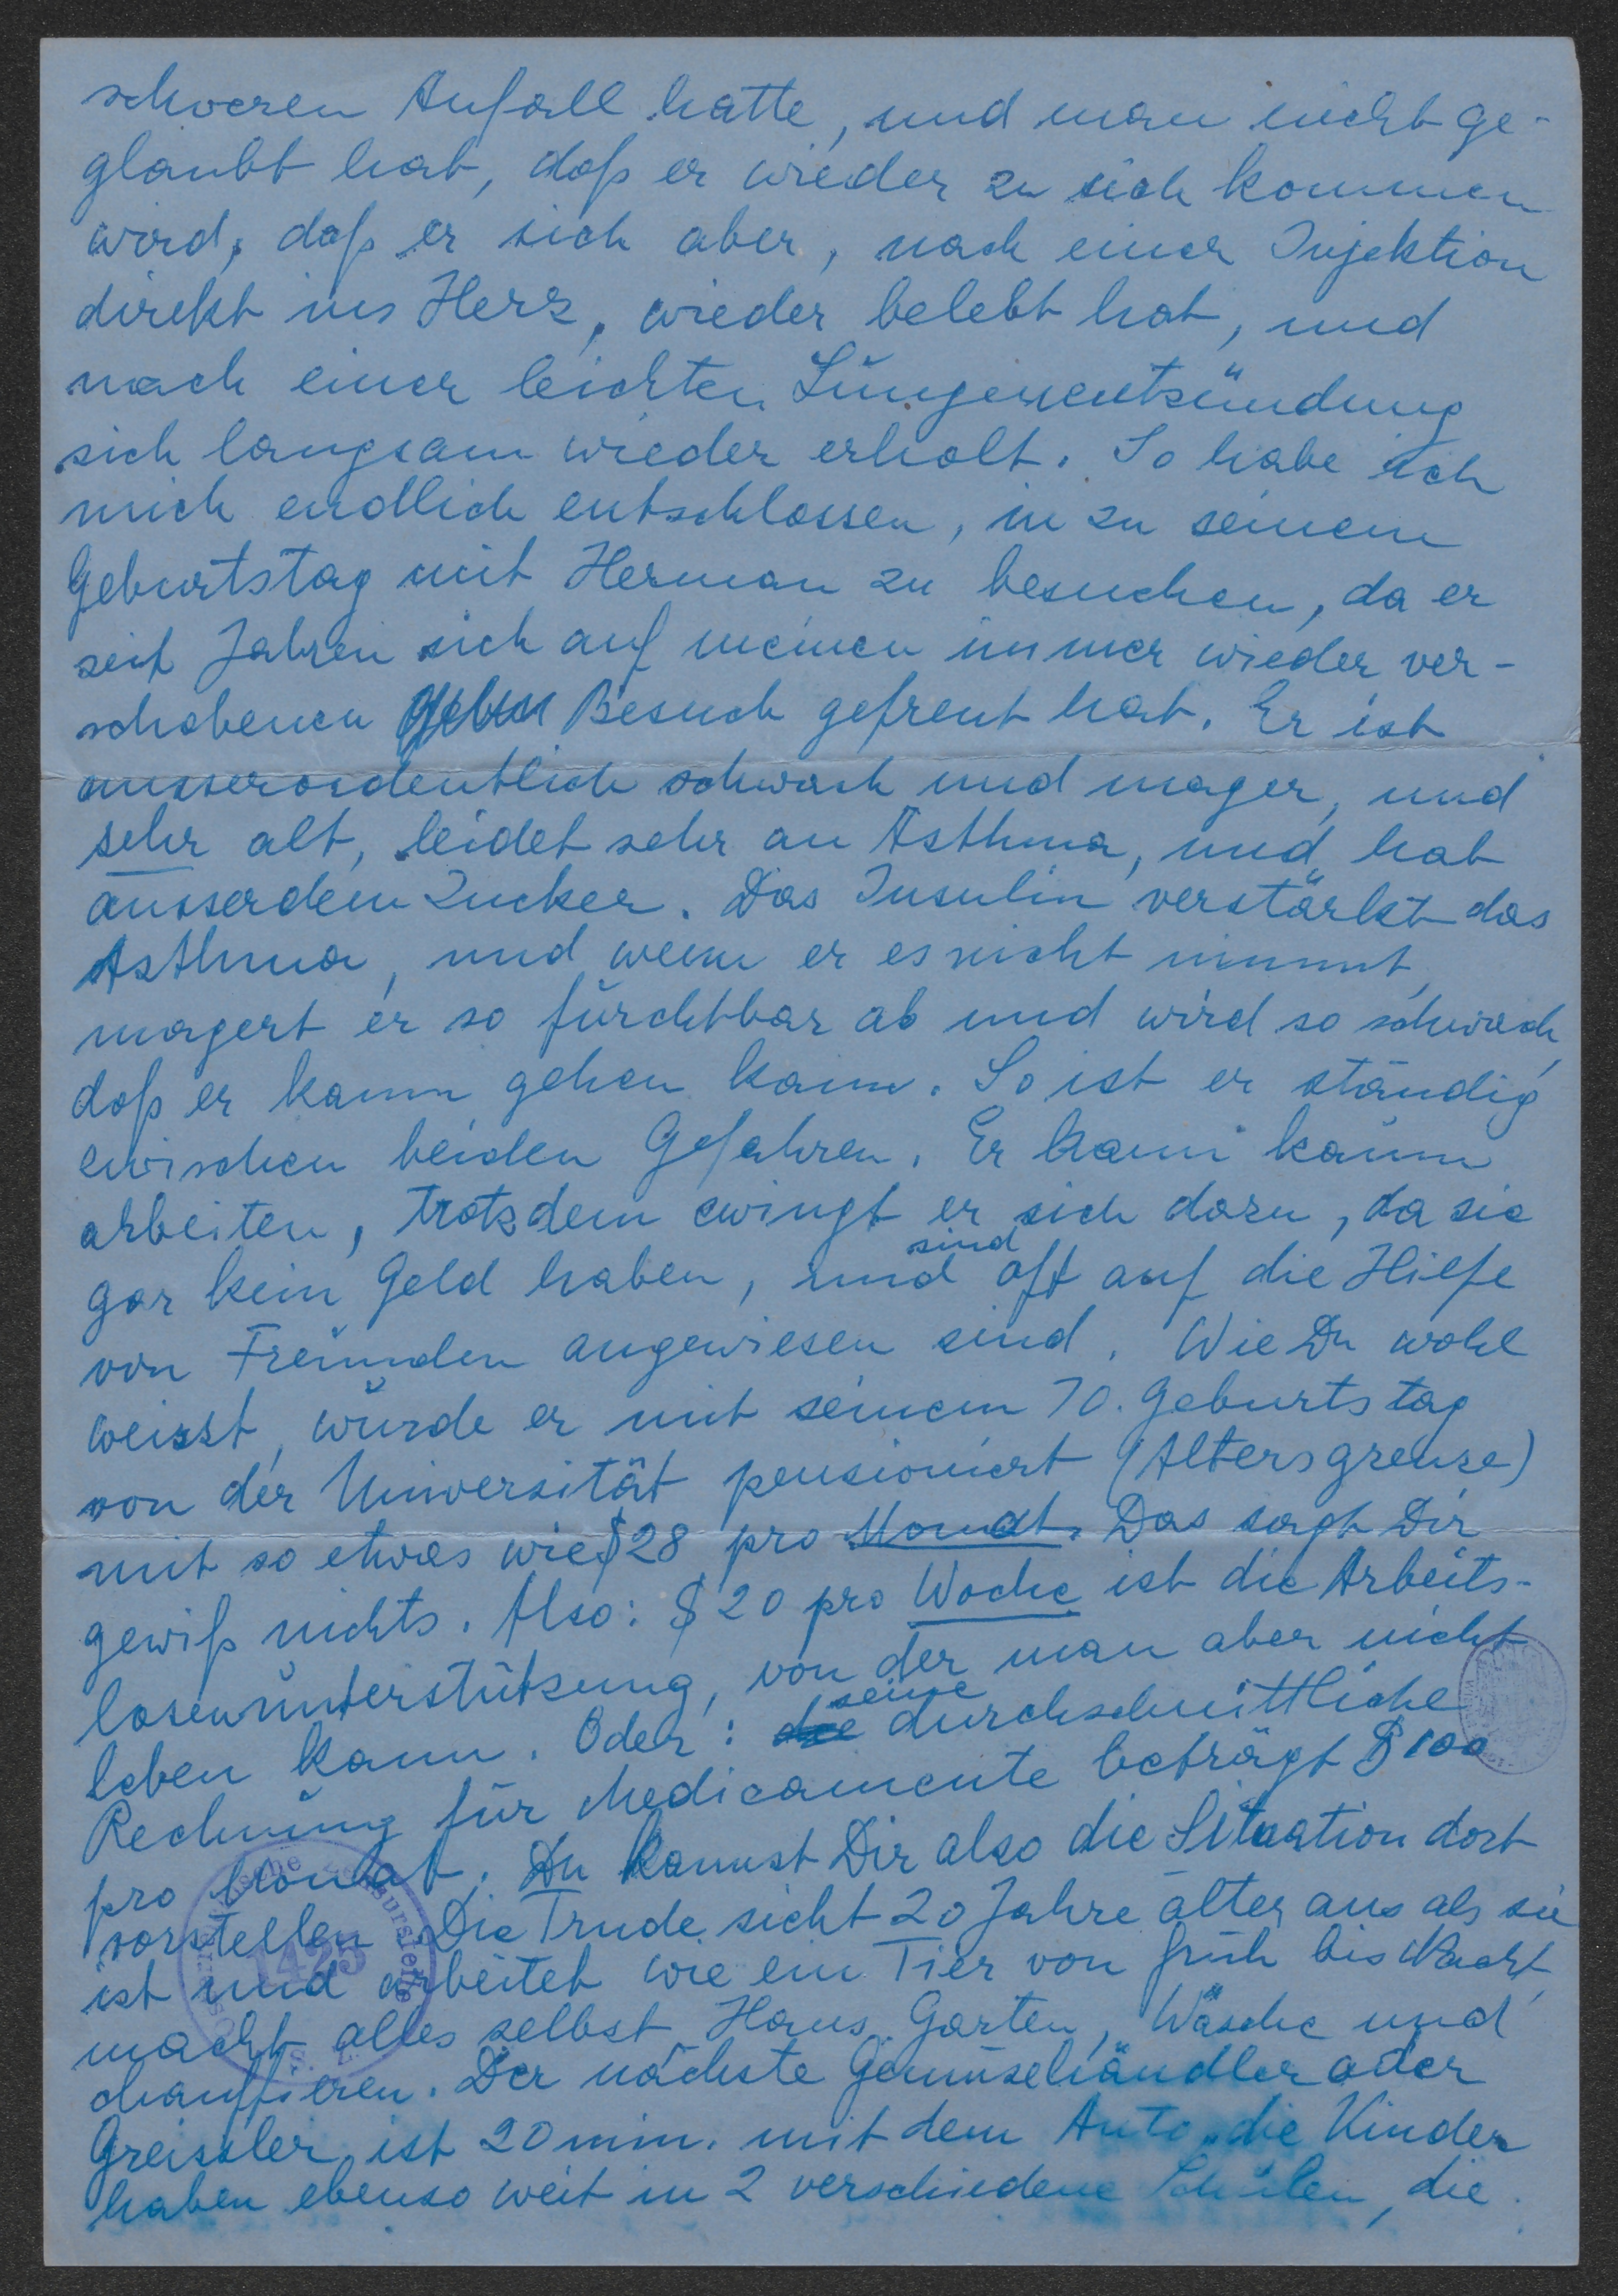 schweren Anfall hatte, und man nicht ge-
glaubt hat, daß er wieder zu sich kommen
wird, daß er sich aber, nach einer Injektion
direkt ins Herz, wieder belebt hat, und
nach einer leichten Lungenentzündung
sich langsam wieder erholt. So habe ich
mich endlich entschlossen, in zu seinem
Geburtstag mit Herman zu besuchen, da er
seit Jahren sich auf meinen immer wieder ver-
schobenen Besuch gefreut hat. Er ist
ausserordentlich schwach und mager, und
sehr alt, leidet sehr an Asthma, und hat
ausserdem Zucker. Das Insulin verstärkt das
Asthma, und wenn er es nicht nimmt,
magert er so fürchtbar ab und wird so schwach,
daß er kaum gehen kann. So ist er ständig
zwischen beiden Gefahren. Er kann kaum
arbeiten, trotzdem zwingt er sich dazu, da sie
gar kein Geld haben, und sind oft auf die Hilfe
von Freunden angewiesen sind. Wie Du wohl
weisst, wurde er mit seinem 70. Geburtstag
von der Universität pensioniert (Altersgrenze)
mit so etwas wie $28 pro Monat. Das sagt Dir
gewiß nichts. Also: $20 pro Woche ist die Arbeits-
losenunterstützung, von der man aber nicht
leben kann. Oder: die seine durchschnittliche
Rechnung für Medicamente beträgt $100
pro Monat. Du kannst Dir also die Situation dort
vorstellen. Die Trude sieht 20 Jahre älter aus als sie
ist und arbeitet wie ein Tier von früh bis Nacht,
macht alles selbst, Haus, Garten, Wäsche und
chauffieren. Der nächste Gemüsehändler oder
Greissler ist 20 min. mit dem Auto, die Kinder
haben ebenso weit in 2 verschiedene Schulen, die
Österreichische Zensurstelle
1425
S.